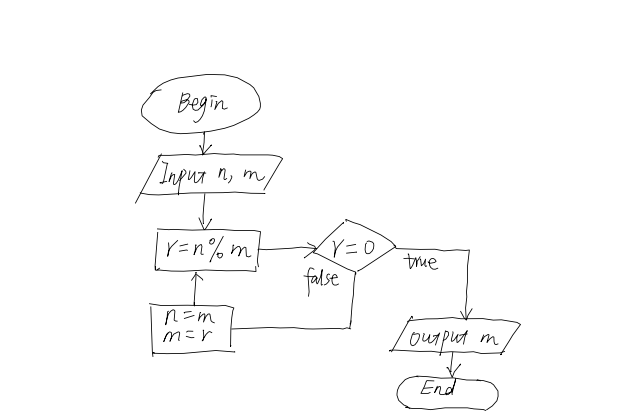 Begin
Input n, m
r=n% m
r=0
false
true
n=m
m=r
output m
End